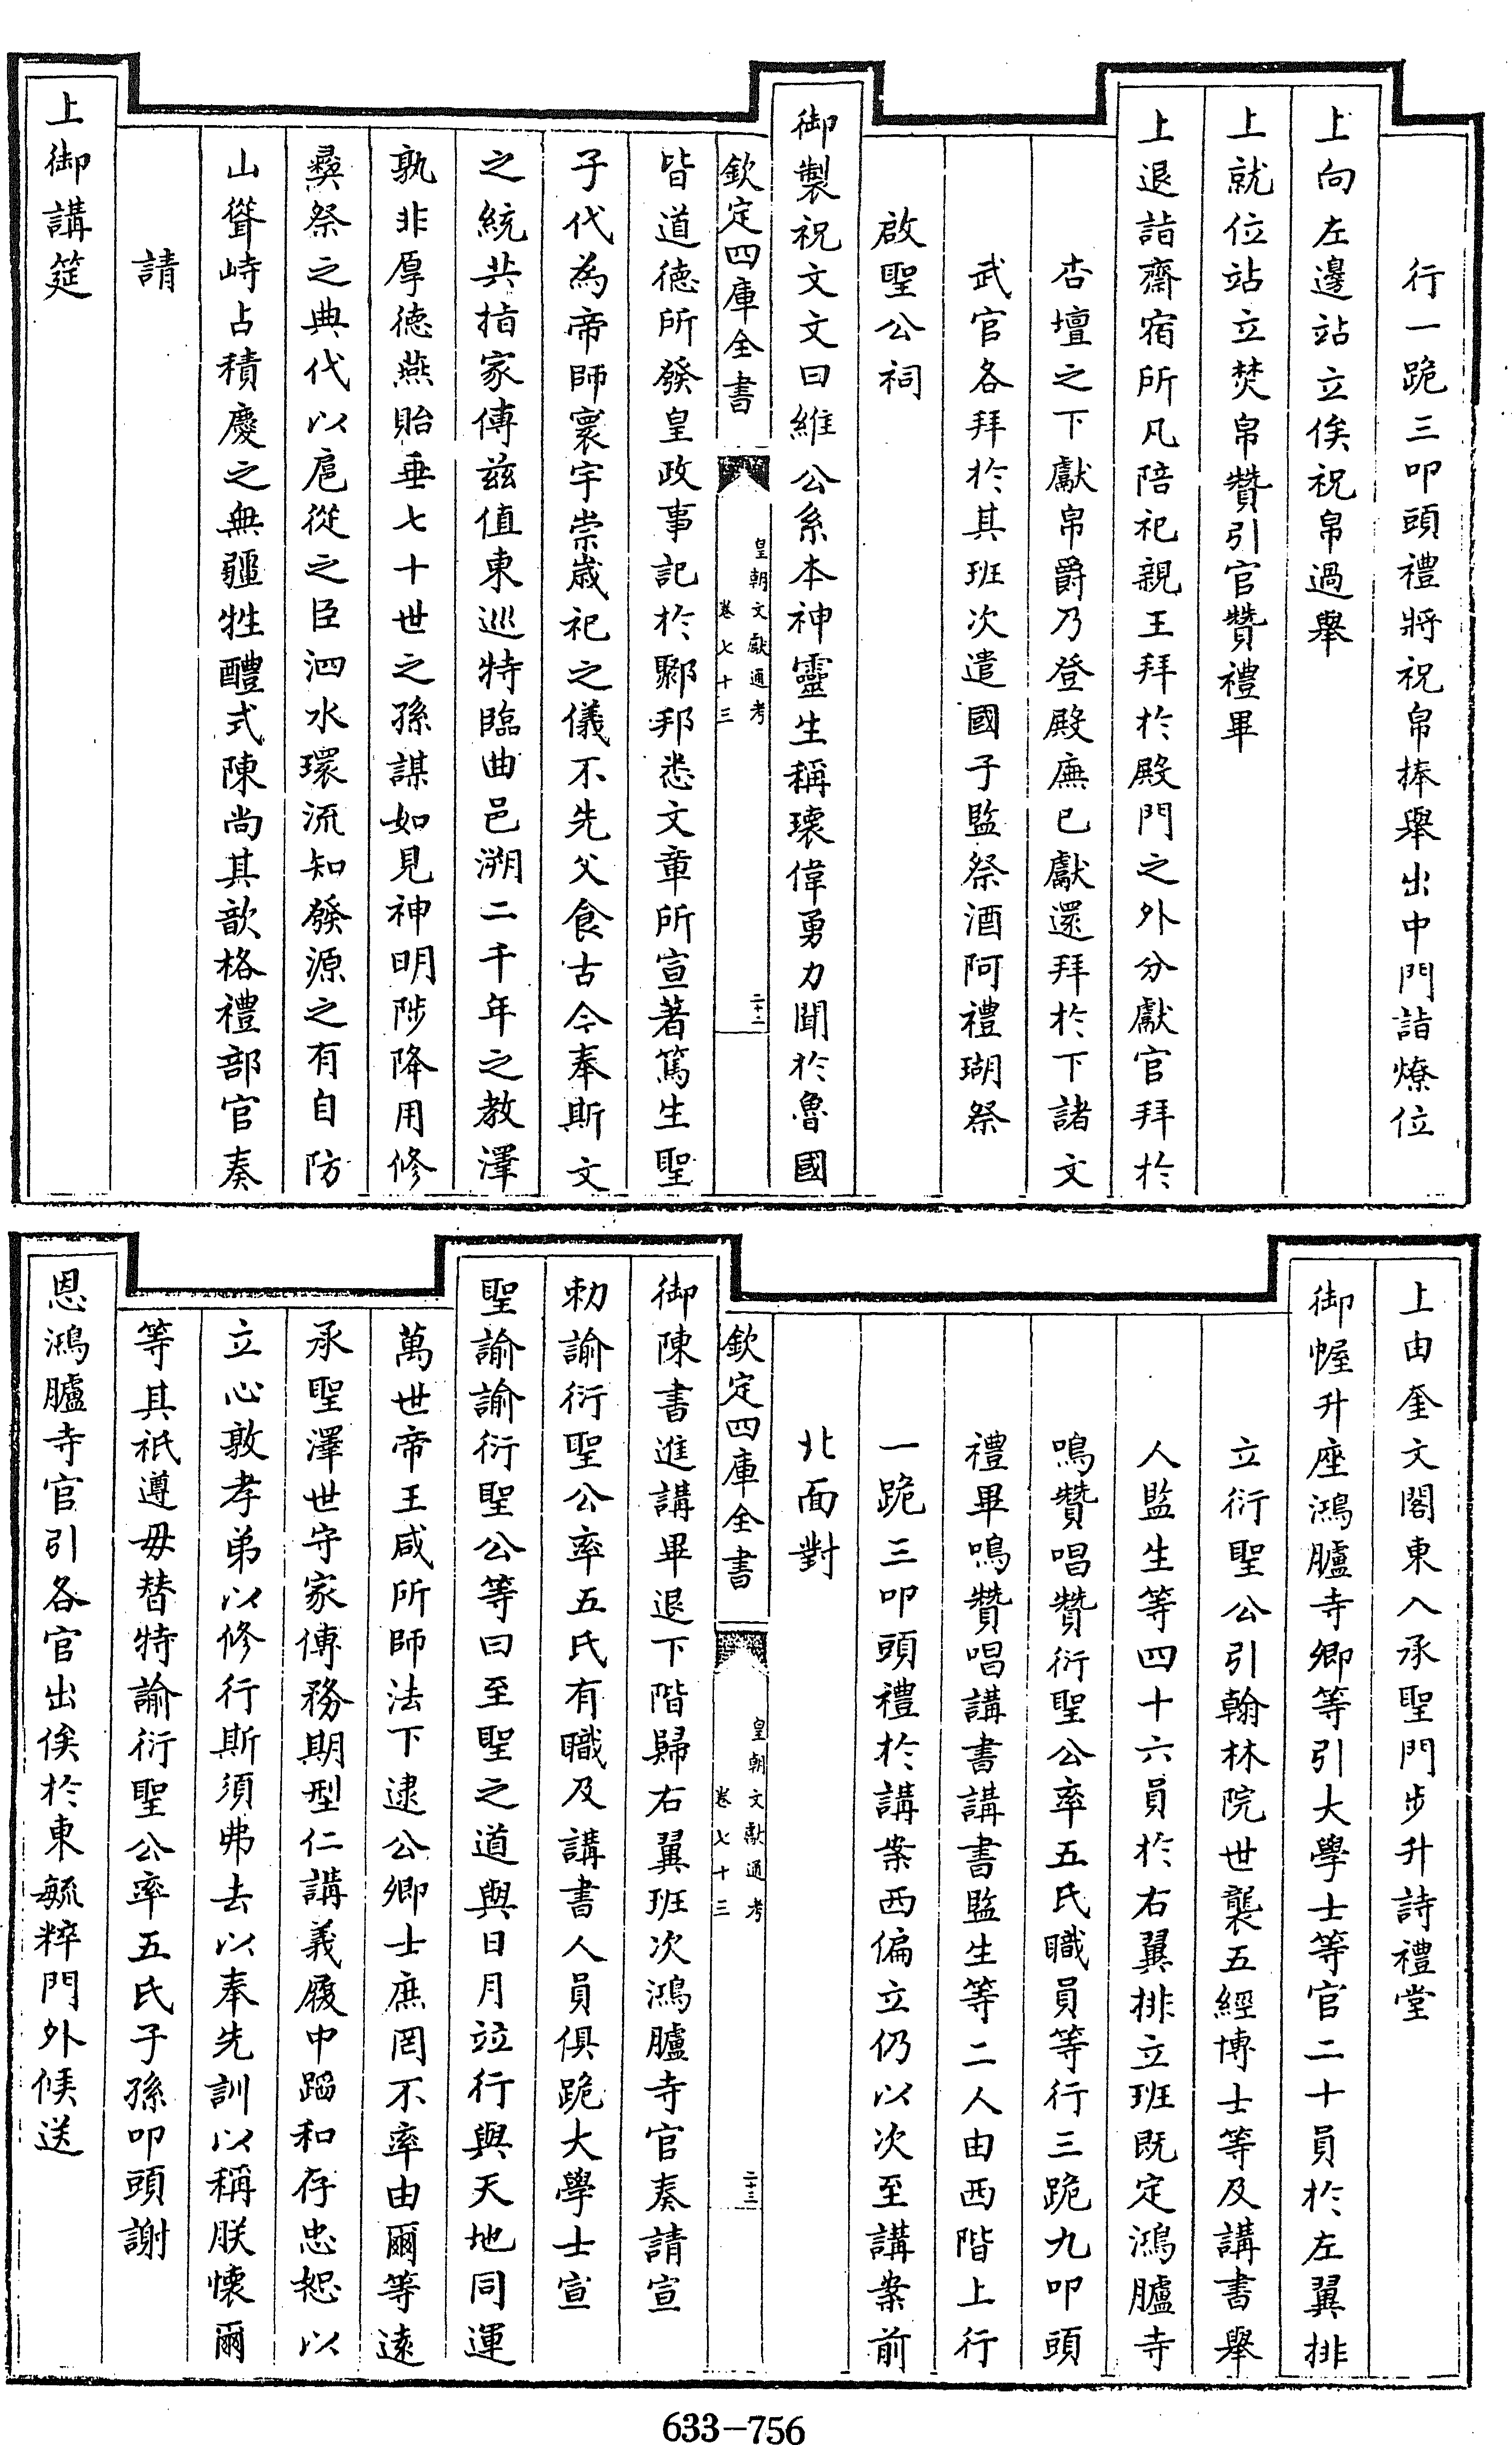 行一跪三叩頭禮將祝帛捧舉出中門詣燎位
上向左邊站立俟祝帛過舉
上就位站立焚帛贊引官贊禮畢
上退詣齋宿所凡陪祀親王拜於殿門之外分獻官拜於
杏壇之下獻帛爵乃登殿廡已獻還拜於下諸文
武官各拜於其班次遣國子監祭酒阿禮瑚祭
啟聖公祠
御製祝文文曰維公系本神靈生稱瓌偉勇力聞於魯國
欽定四庫全書
皇朝文獻通考
卷七十三
二十二
皆道徳所發皇政事記於鄹邦悉文章所宣著篤生聖
子代為帝師寰宇崇歳祀之儀不先父食古今奉斯文
之統共指家傳兹值東巡特臨曲邑溯二千年之教澤
孰非厚徳燕貽垂七十世之孫謀如見神明陟降用修
彛祭之典代以扈從之臣泗水環流知發源之有自防
山聳峙占積慶之無疆牲醴式陳尚其歆格禮部官奏
請
上御講筵
上由奎文閣東入承聖門步升詩禮堂
御幄升座鴻臚寺卿等引大學士等官二十員於左翼排
立衍聖公引翰林院世襲五經博士等及講書舉
人監生等四十六員於右翼排立班既定鴻臚寺
鳴贊唱贊衍聖公率五氏職員等行三跪九叩頭
禮畢鳴贊唱講書講書監生等二人由西階上行
一跪三叩頭禮於講案西偏立仍以次至講案前
北面對
欽定四庫全書
皇朝文獻通考
卷七十三
二十三
御陳書進講畢退下階歸右翼班次鴻臚寺官奏請宣
勅諭衍聖公率五氏有職及講書人員俱跪大學士宣
聖諭諭衍聖公等曰至聖之道與日月竝行與天地同運
萬世帝王咸所師法下逮公卿士庶罔不率由爾等逺
承聖澤世守家傳務期型仁講義履中蹈和存忠恕以
立心敦孝弟以修行斯須弗去以奉先訓以稱朕懷爾
等其祇遵毋替特諭衍聖公率五氏子孫叩頭謝
恩鴻臚寺官引各官出俟於東毓粹門外候送
633-756